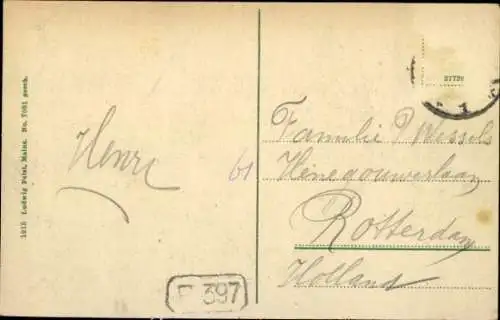 1915 Ludwig Feist, Mainz. No. 7091 gesch.
Henri
61
27726
Familie P/Wessels
Henegouwerlaan
Rotterdam
Holland
P 397